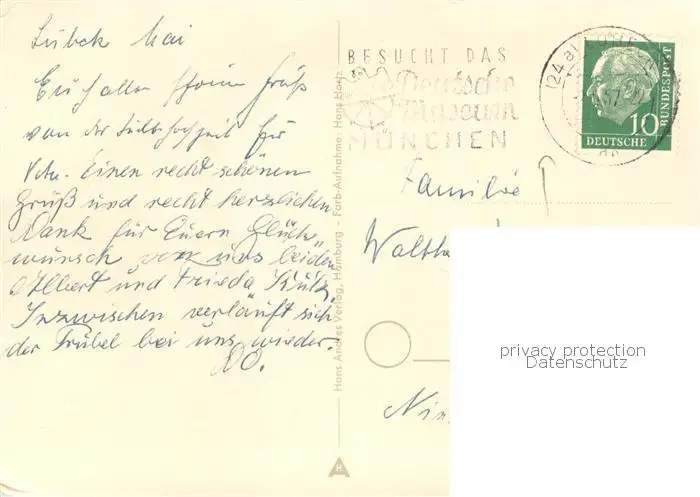 Lübeck Mai
Euch allen Gruß
von der Silberhochzeit für
Einen recht schönen
Gruß und recht herzlichen
Dank für Euern Glück-
wunsch von uns beiden
Albert und Frieda
Inzwischen verläuft sich
der Trubel bei uns wieder.
BESUCHT DAS
Deutsche
Museum
MÜNCHEN
(24a)
57
10
DEUTSCHE
BUNDESPOST
Familie
Walth
Nin
Hans Andres Verlag, Hamburg - Farb-Aufnahme: Hans Hartz
H
privacy protection
Datenschutz